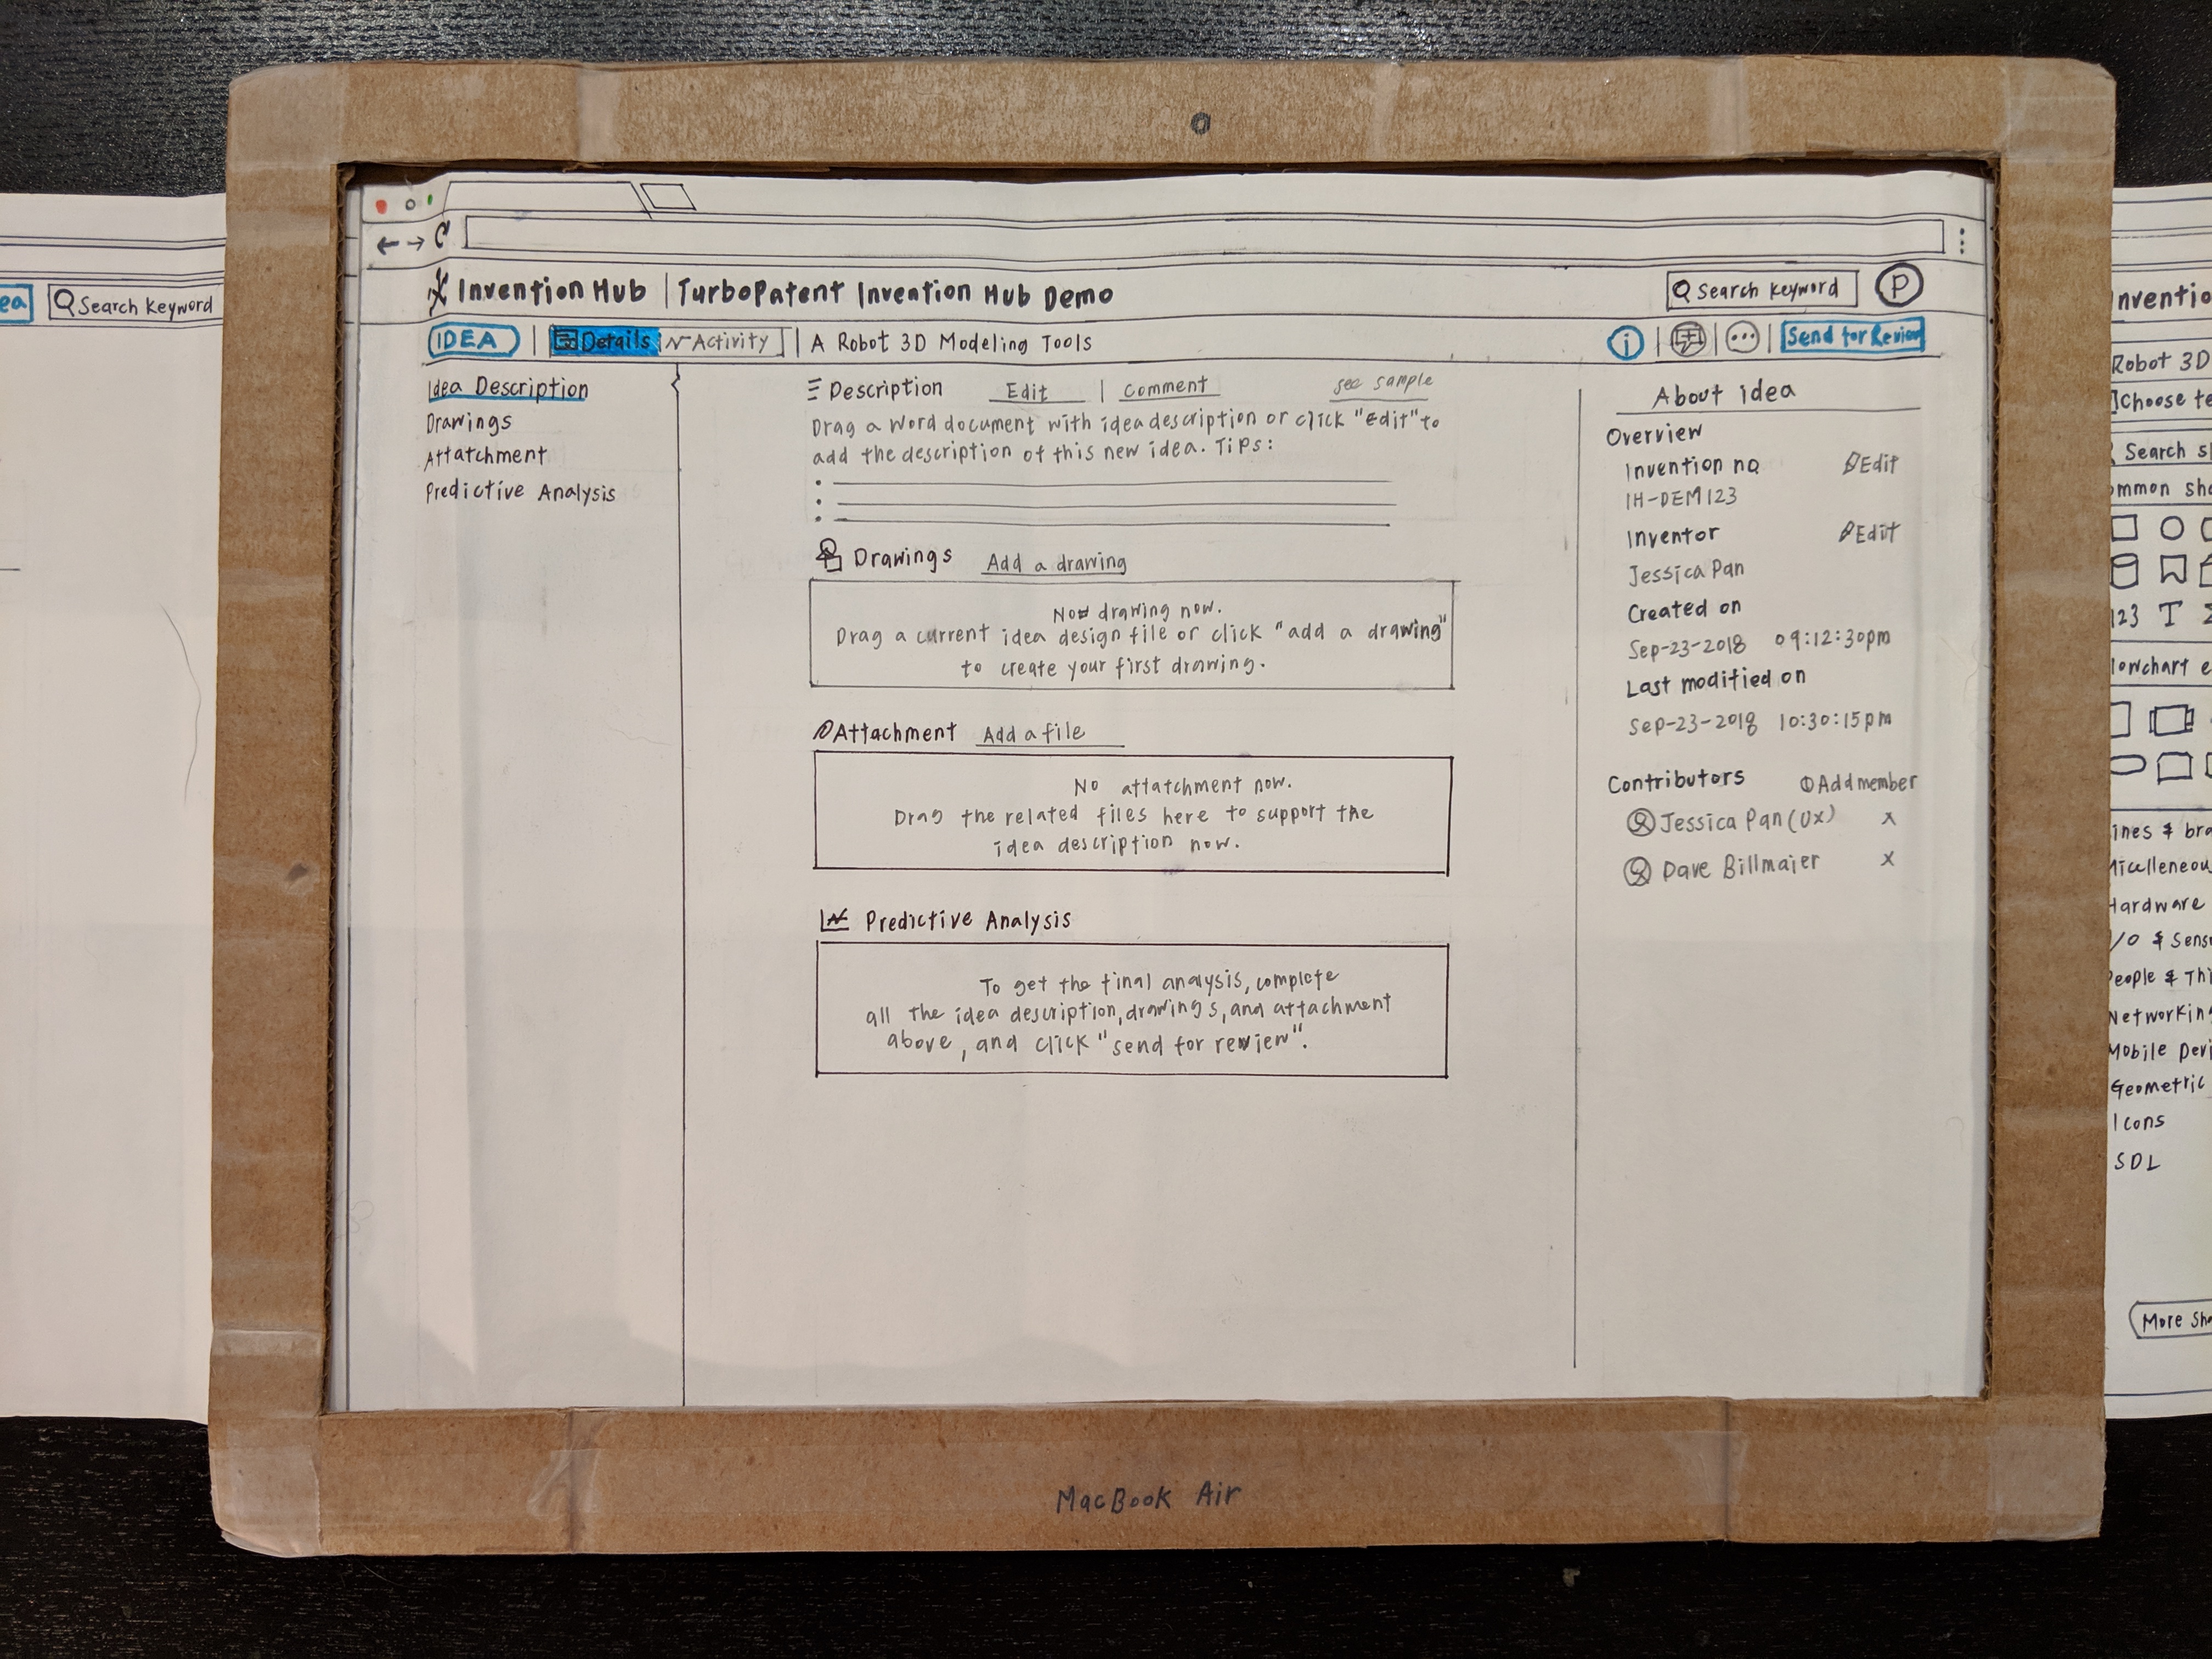 Invention Hub | TurboPatent Invention Hub Demo
Search keyword
P
IDEA | Details Activity | A Robot 3D Modeling Tools
i
Send for Review
Idea Description
Drawings
Attatchment
Predictive Analysis
Description Edit | Comment see sample
Drag a Word document with idea description or click "edit" to
add the description of this new idea. Tips:
Drawings Add a drawing
drawing now.
Drag a current idea design file or click "add a drawing"
to create your first drawing.
Attachment Add a file
No attatchment now.
Drag the related files here to support the
idea description now.
Predictive Analysis
To get the final analysis, complete
all the idea description, drawings, and attachment
above, and click "send for review".
About idea
Overview
Invention no Edit
IH-DEM123
Inventor Edit
Jessica Pan
Created on
Sep-23-2018 09:12:30pm
Last modified on
Sep-23-2018 10:30:15pm
Contributors Add member
Jessica Pan (UX) x
Dave Billmaier x
MacBook Air
ea
Search keyword
nventio
Robot 3D
Choose te
Search s
ommon sha
123 T
lowchart e
ines & bra
Micelleneou
Hardware
I/O & Sens
People & Thi
Networkin
Mobile Devi
Geometric
Icons
SDL
More Sha